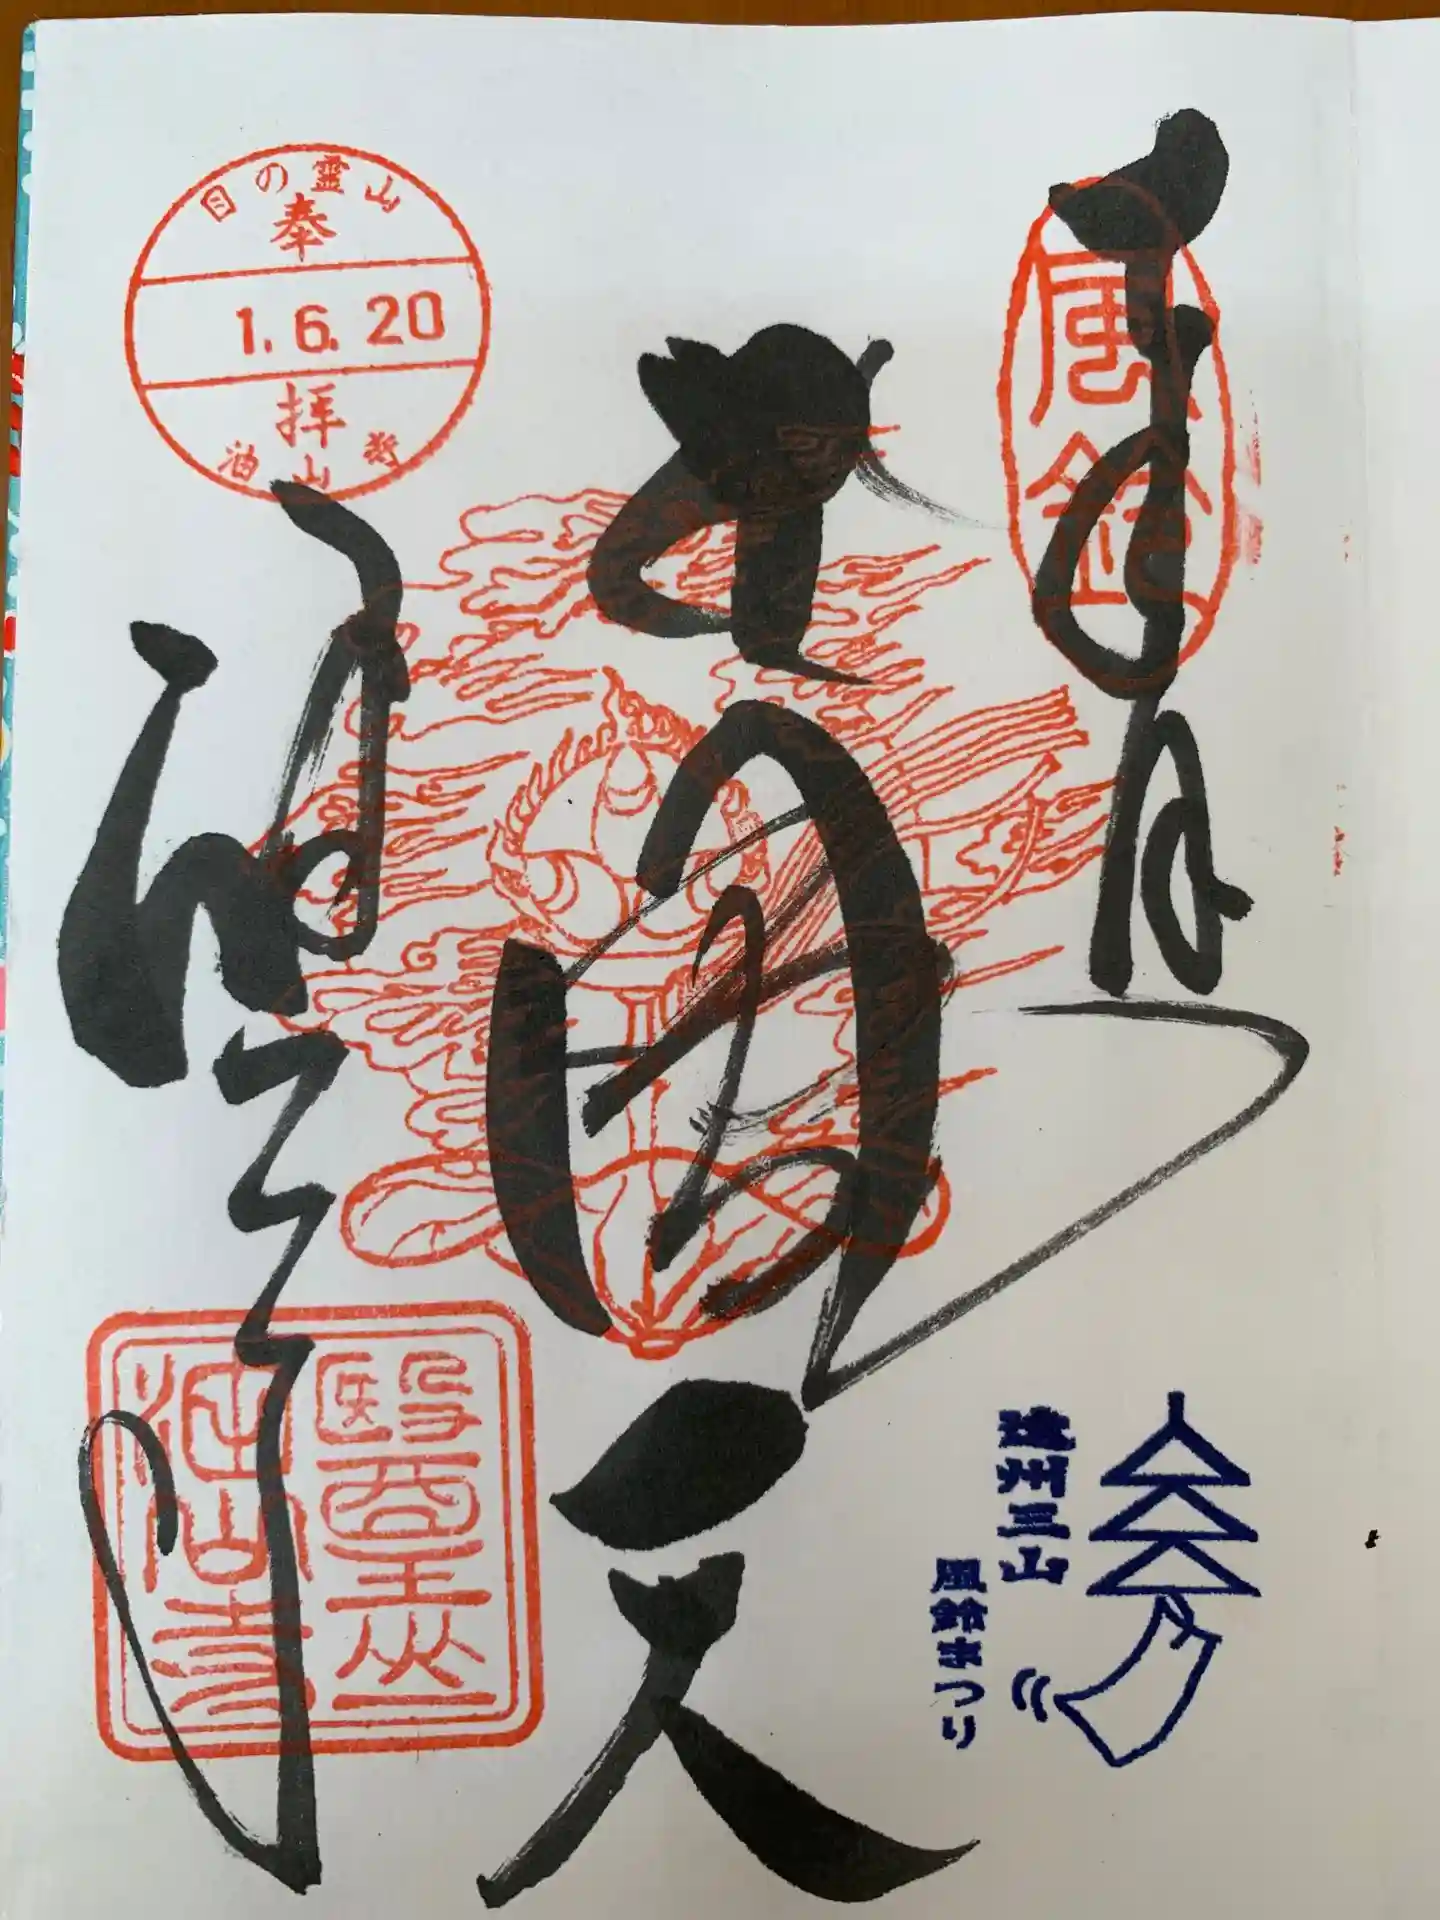 風鈴
遠州三山
風鈴まつり
天
目の霊山
奉
1.6.20
拝
油山寺
油山寺
醫王山
油山寺